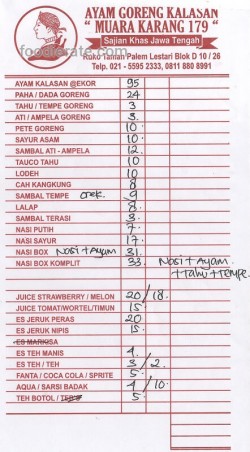 AYAM GORENG KALASAN
" MUARA KARANG 179 "
Sajian Khas Jawa Tengah
Ruko Taman Palem Lestari Blok D 10 / 26
Telp. 021 - 5595 2333, 0811 880 8991
foodierate.com
AYAM KALASAN @EKOR 95
PAHA / DADA GORENG 24
TAHU / TEMPE GORENG 3
ATI / AMPELA GORENG 3
PETE GORENG 10
SAYUR ASAM 10
SAMBAL ATI - AMPELA 12
TAUCO TAHU 10
LODEH 10
CAH KANGKUNG 8
SAMBAL TEMPE Orek. 9
LALAP 8
SAMBAL TERASI 3
NASI PUTIH 7
NASI SAYUR 17
NASI BOX Nasi + Ayam 31
NASI BOX KOMPLIT 33 Nasi + Ayam
+ Tahu + Tempe
JUICE STRAWBERRY / MELON 20 / 18
JUICE TOMAT/WORTEL/TIMUN 15
ES JERUK PERAS 20
ES JERUK NIPIS 15
ES MARKISA
ES TEH MANIS 4
ES TEH / TEH 3 / 2
FANTA / COCA COLA / SPRITE 5
AQUA / SARSI BADAK 4 / 10
TEH BOTOL / 5